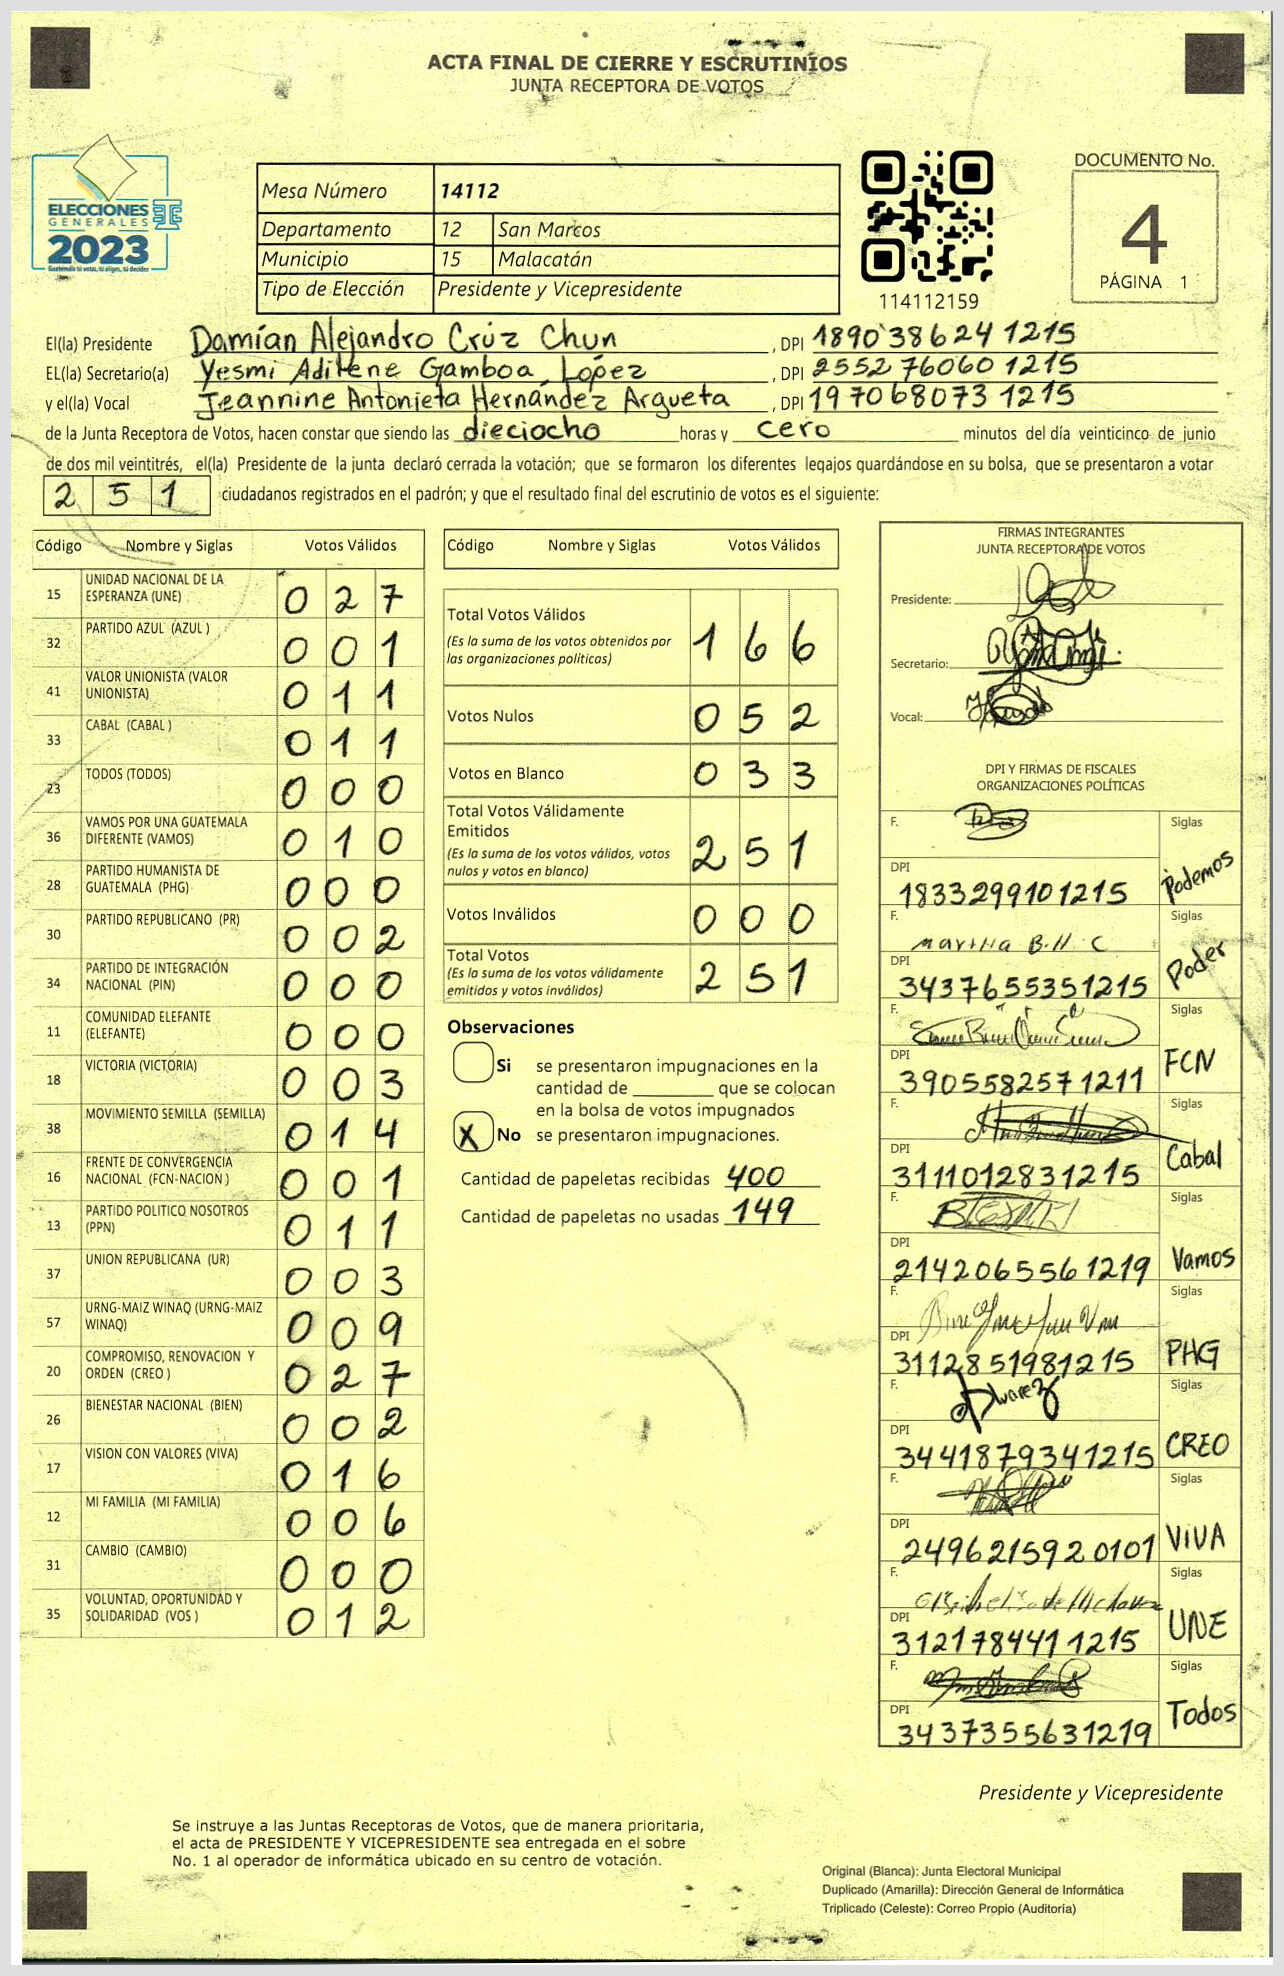 ACTA FINAL DE CIERRE Y ESCRUTINIOS
JUNTA RECEPTORA DE VOTOS
ELECCIONES
GENERALES
2023
Guatemala tú votas, tú eliges, tú decides
Mesa Número 14112
Departamento 12 San Marcos
Municipio 15 Malacatán
Tipo de Elección Presidente y Vicepresidente
114112159
DOCUMENTO No.
4
PÁGINA 1
El(la) Presidente Damían Alejandro Crúz Chun , DPI 1890386241215
EL(la) Secretario(a) Yesmi Aditene Gamboa López , DPI 2552760601215
y el(la) Vocal Jeannine Antonieta Hernández Argueta , DPI 1970680731215
de la Junta Receptora de Votos, hacen constar que siendo las dieciocho horas y cero minutos del día veinticinco de junio
de dos mil veintitrés, el(la) Presidente de la junta declaró cerrada la votación; que se formaron los diferentes legajos guardándose en su bolsa, que se presentaron a votar
251 ciudadanos registrados en el padrón; y que el resultado final del escrutinio de votos es el siguiente:
Código Nombre y Siglas Votos Válidos
15 UNIDAD NACIONAL DE LA ESPERANZA (UNE) 027
32 PARTIDO AZUL (AZUL ) 001
41 VALOR UNIONISTA (VALOR UNIONISTA) 011
33 CABAL (CABAL ) 011
23 TODOS (TODOS) 000
36 VAMOS POR UNA GUATEMALA DIFERENTE (VAMOS) 010
28 PARTIDO HUMANISTA DE GUATEMALA (PHG) 000
30 PARTIDO REPUBLICANO (PR) 002
34 PARTIDO DE INTEGRACIÓN NACIONAL (PIN) 000
11 COMUNIDAD ELEFANTE (ELEFANTE) 000
18 VICTORIA (VICTORIA) 003
38 MOVIMIENTO SEMILLA (SEMILLA) 014
16 FRENTE DE CONVERGENCIA NACIONAL (FCN-NACION ) 001
13 PARTIDO POLITICO NOSOTROS (PPN) 011
37 UNION REPUBLICANA (UR) 003
57 URNG-MAIZ WINAQ (URNG-MAIZ WINAQ) 009
20 COMPROMISO, RENOVACION Y ORDEN (CREO ) 027
26 BIENESTAR NACIONAL (BIEN) 002
17 VISION CON VALORES (VIVA) 016
12 MI FAMILIA (MI FAMILIA) 006
31 CAMBIO (CAMBIO) 000
35 VOLUNTAD, OPORTUNIDAD Y SOLIDARIDAD (VOS ) 012
Código Nombre y Siglas Votos Válidos
Total Votos Válidos 166
(Es la suma de los votos obtenidos por
las organizaciones políticas)
Votos Nulos 052
Votos en Blanco 033
Total Votos Válidamente
Emitidos 251
(Es la suma de los votos válidos, votos
nulos y votos en blanco)
Votos Inválidos 000
Total Votos 251
(Es la suma de los votos válidamente
emitidos y votos inválidos)
Observaciones
Si se presentaron impugnaciones en la
cantidad de ________ que se colocan
en la bolsa de votos impugnados
X No se presentaron impugnaciones.
Cantidad de papeletas recibidas 400
Cantidad de papeletas no usadas 149
FIRMAS INTEGRANTES
JUNTA RECEPTORA DE VOTOS
Presidente:
Secretario:
Vocal:
DPI Y FIRMAS DE FISCALES
ORGANIZACIONES POLÍTICAS
F. Siglas
DPI 1833299101215 Podemos
F. Martha B.H C Siglas
DPI 3437655351215 Poder
F. Siglas
DPI 3905582571211 FCN
F. Siglas
DPI 3111012831215 Cabal
F. Siglas
DPI 2142065561219 Vamos
F. Siglas
DPI 3112851981215 PHG
F. Alvarez Siglas
DPI 3441879341215 CREO
F. Siglas
DPI 2496215920101 ViVA
F. Siglas
DPI 3121784411215 UNE
F. Siglas
DPI 3437355631219 Todos
Presidente y Vicepresidente
Se instruye a las Juntas Receptoras de Votos, que de manera prioritaria,
el acta de PRESIDENTE Y VICEPRESIDENTE sea entregada en el sobre
No. 1 al operador de informática ubicado en su centro de votación.
Original (Blanca): Junta Electoral Municipal
Duplicado (Amarilla): Dirección General de Informática
Triplicado (Celeste): Correo Propio (Auditoría)